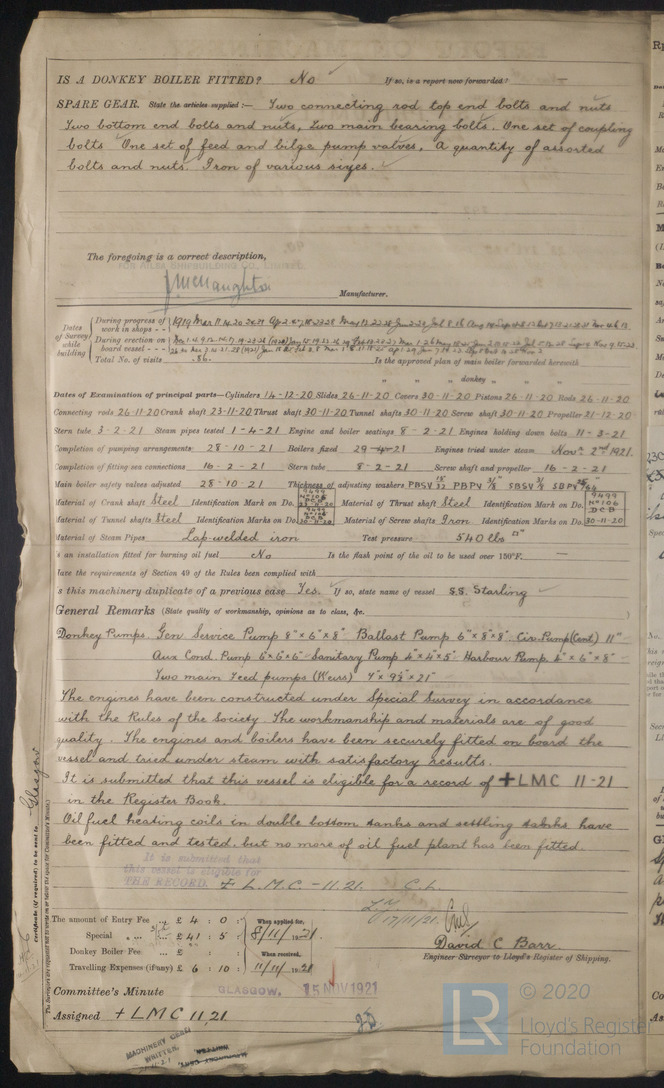 IS A DONKEY BOILER FITTED? No If so, is a report now forwarded? —
SPARE GEAR. State the articles supplied:— Two connecting rod top end bolts and nuts
Two bottom end bolts and nuts, Two main bearing bolts. One set of coupling
bolts One set of feed and bilge pump valves, A quantity of assorted
bolts and nuts. Iron of various sizes.
The foregoing is a correct description,
FOR AILSA SHIPBUILDING CO. LIMITED.
J McNaughton
Manufacturer.
Dates of Survey while building
During progress of work in shops - - 1919 Mar 11 14 20 24
During erection on board vessel - - -
Total No. of visits 86. Is the approved plan of main boiler forwarded herewith
" " donkey " " "
Dates of Examination of principal parts—Cylinders 14-12-20 Slides 26-11-20 Covers 30-11-20 Pistons 26-11-20 Rods 26-11-20
Connecting rods 26-11-20 Crank shaft 23-11-20 Thrust shaft 30-11-20 Tunnel shafts 30-11-20 Screw shaft 30-11-20 Propeller 21-12-20
Stern tube 3-2-21 Steam pipes tested 1-4-21 Engine and boiler seatings 8-2-21 Engines holding down bolts 11-3-21
Completion of pumping arrangements 28-10-21 Boilers fixed 29-4-21 Engines tried under steam Novr 2nd 1921.
Completion of fitting sea connections 16-2-21 Stern tube 8-2-21 Screw shaft and propeller 16-2-21
Main boiler safety valves adjusted 28-10-21 Thickness of adjusting washers PBSV PBPV SBSV SBPV
Material of Crank shaft Steel Identification Mark on Do. 9499 No 106 DCB 23-11-20 Material of Thrust shaft Steel Identification Mark on Do. 9499 No 106 DCB 30-11-20
Material of Tunnel shafts Steel Identification Marks on Do. 9499 No 106 DCB 30-11-20 Material of Screw shafts Iron Identification Marks on Do.
Material of Steam Pipes Lap-welded iron Test pressure 540 lbs
Is an installation fitted for burning oil fuel No Is the flash point of the oil to be used over 150°F. —
Have the requirements of Section 49 of the Rules been complied with
Is this machinery duplicate of a previous case Yes. If so, state name of vessel S.S. Starling
General Remarks (State quality of workmanship, opinions as to class, &c.
Donkey Pumps. Gen Service Pump 8" x 6" x 8" Ballast Pump 6" x 8" x 8". Cir. Pump (Cent) 11"
Aux Cond. Pump 6" x 6" x 6" Sanitary Pump 4" x 4" x 5" Harbour Pump 4" x 6" x 8"
Two main Feed pumps (Weirs) 7" x 9½" x 21"
The engines have been constructed under Special Survey in accordance
with the Rules of the Society The workmanship and materials are of good
quality. The engines and boilers have been securely fitted on board the
vessel and tried under steam with satisfactory results.
It is submitted that this vessel is eligible for a record of +LMC 11-21
in the Register Book.
Oil fuel heating coils in double bottom tanks and settling tanks have
been fitted and tested, but no more of oil fuel plant has been fitted.
It is submitted that
this vessel is eligible for
THE RECORD. + L.M.C - 11.21. C.L.
17/11/21.
The amount of Entry Fee £ 4 : 0 : When applied for,
Special £ 41 : 5 : 8/11/1921.
Donkey Boiler Fee £ : : When received,
Travelling Expenses (if any) £ 6 : 10 : 11/11/1921
David C Barr.
Engineer Surveyor to Lloyd's Register of Shipping.
Committee's Minute GLASGOW. 15 NOV 1921
Assigned + LMC 11,21
MACHINERY CERT
WRITTEN.
Certificate (if required) to be sent to Glasgow
© 2020
Lloyd's Register
Foundation